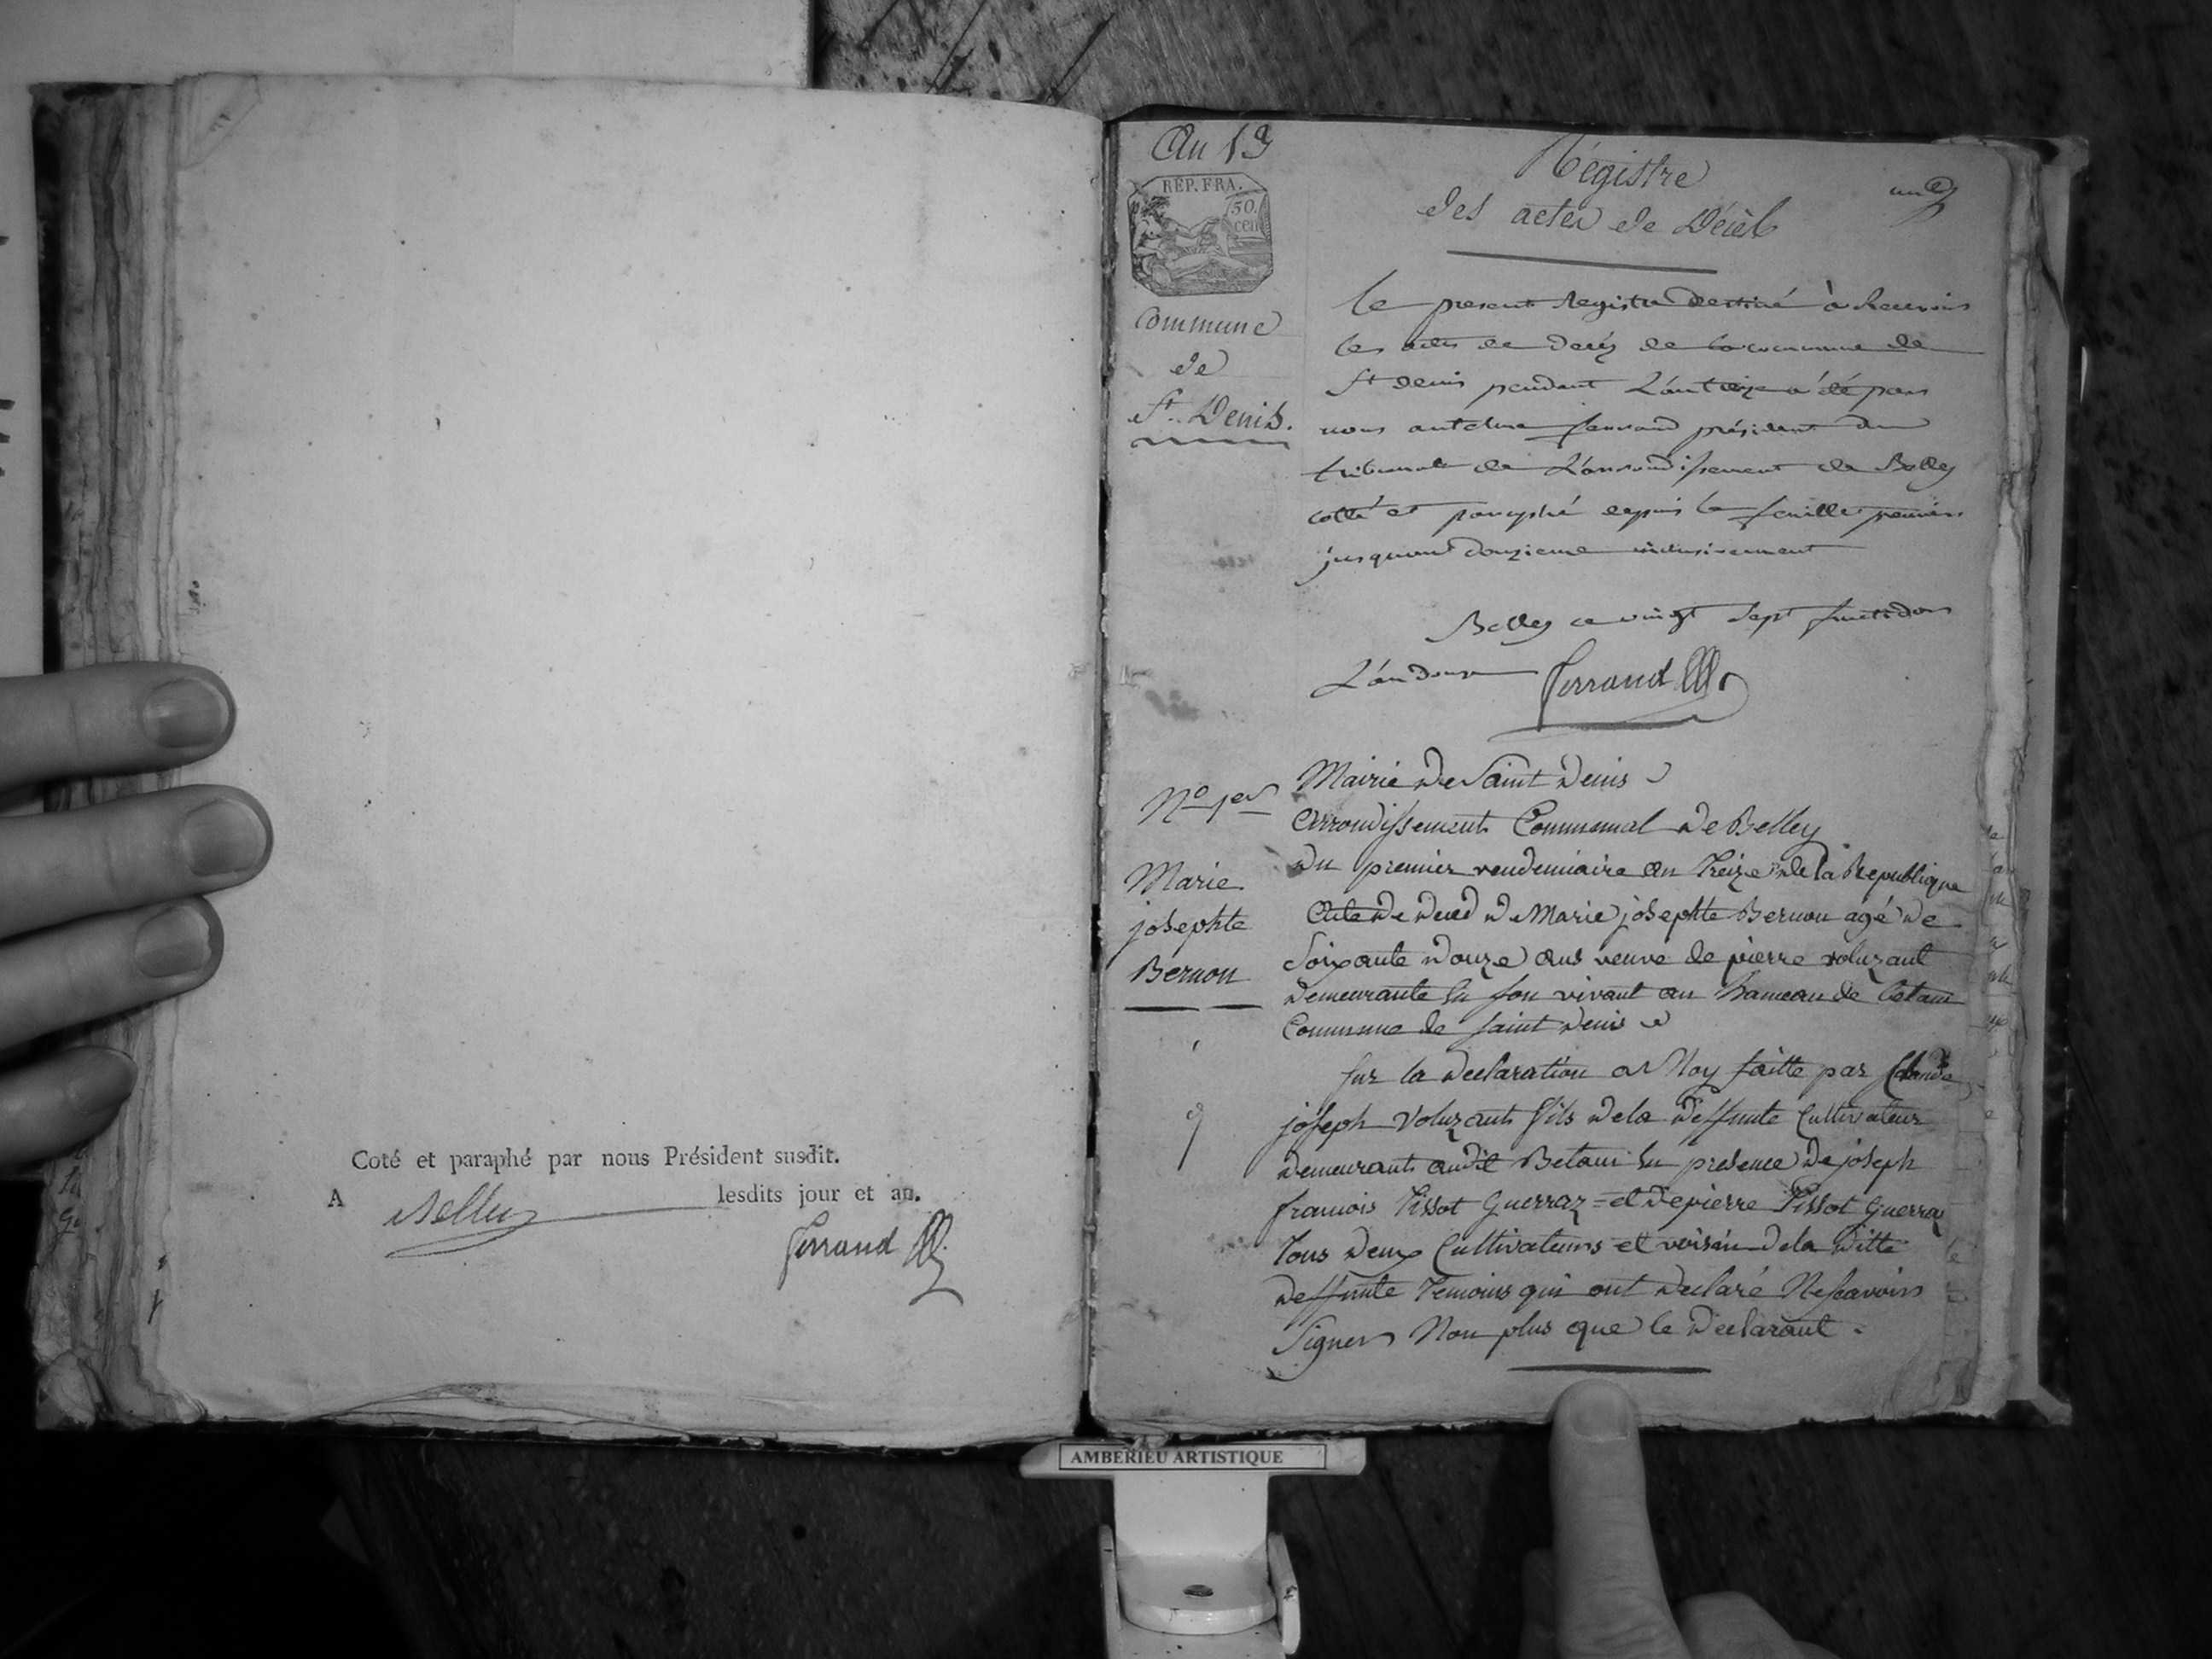 Coté et paraphé par nous Président susdit.
A Belley lesdits jour et an.
Ferrand
An 13
REP. FRA.
50
cen
Commune
de
St. Denis.
Régistre
des actes de Décès
un
le present Registre destiné à Recevoir
les actes de decés de la commune de
St denis pendant L'an treize a été par
nous antelme ferrand président du
tribunal de L'arrondissement de Belley
cotté et paraphé depuis le feuillet premier
jusqu'au douzieme inclusivement
Belley ce vingt Sept fructidor
L'an douze Ferrand
No 1er
Marie
josephte
Bernon
Mairie de Saint denis
Arrondissement Communal de Belley
du premier vendemiaire an treize de la Republique
Acte de deced de Marie josephte Bernon agé de
Soixante douze ans veuve de pierre voluzant
demeurante En son vivant au hameau de
Commune de saint denis
sur la declaration a Moy faitte par Claude
joseph Voluzant fils de la deffunte Cultivateur
demeurant audit Betani En presence de joseph
francois Tissot Guerraz et de pierre Tissot Guerraz
tous deux Cultivateurs et voisin de la ditte
deffunte temoins qui ont declaré Ne scavoir
Signer Non plus que le declarant.
AMBERIEU ARTISTIQUE